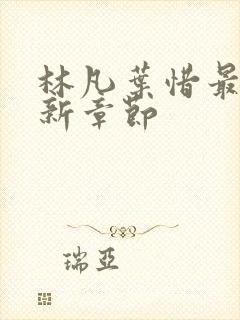 林凡葉惜最
新章節
瑞亞